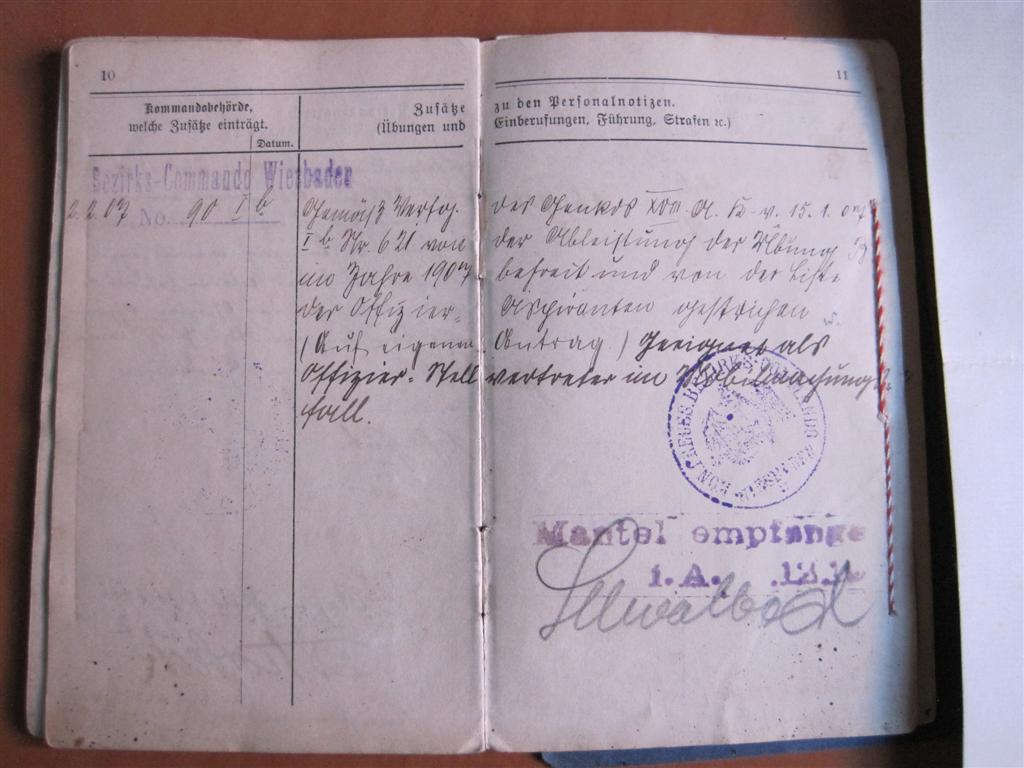 10
11
Kommandobehörde,
welche Zusätze einträgt.
Datum.
Zusätze zu den Personalnotizen.
(Übungen und Einberufungen, Führung, Strafen ꝛc.)
Bezirks-Commando Wiesbaden
2.2.07 No. 90 I b
Gemäß Verfgg. des Genkdos XVIII. A. K. v. 15.1.07
I b Nr. 621 von der Ableistung der Übung B
im Jahre 1907 befreit und von der Liste
der Offizier- Aspiranten gestrichen
(Auf eigenen Antrag.) Geeignet als
Offizier-Stellvertreter im Mobilmachungs-
fall.
KÖN. PREUSS. BEZIRKS-COMMANDO WIESBADEN
Mantel empfange
i. A.